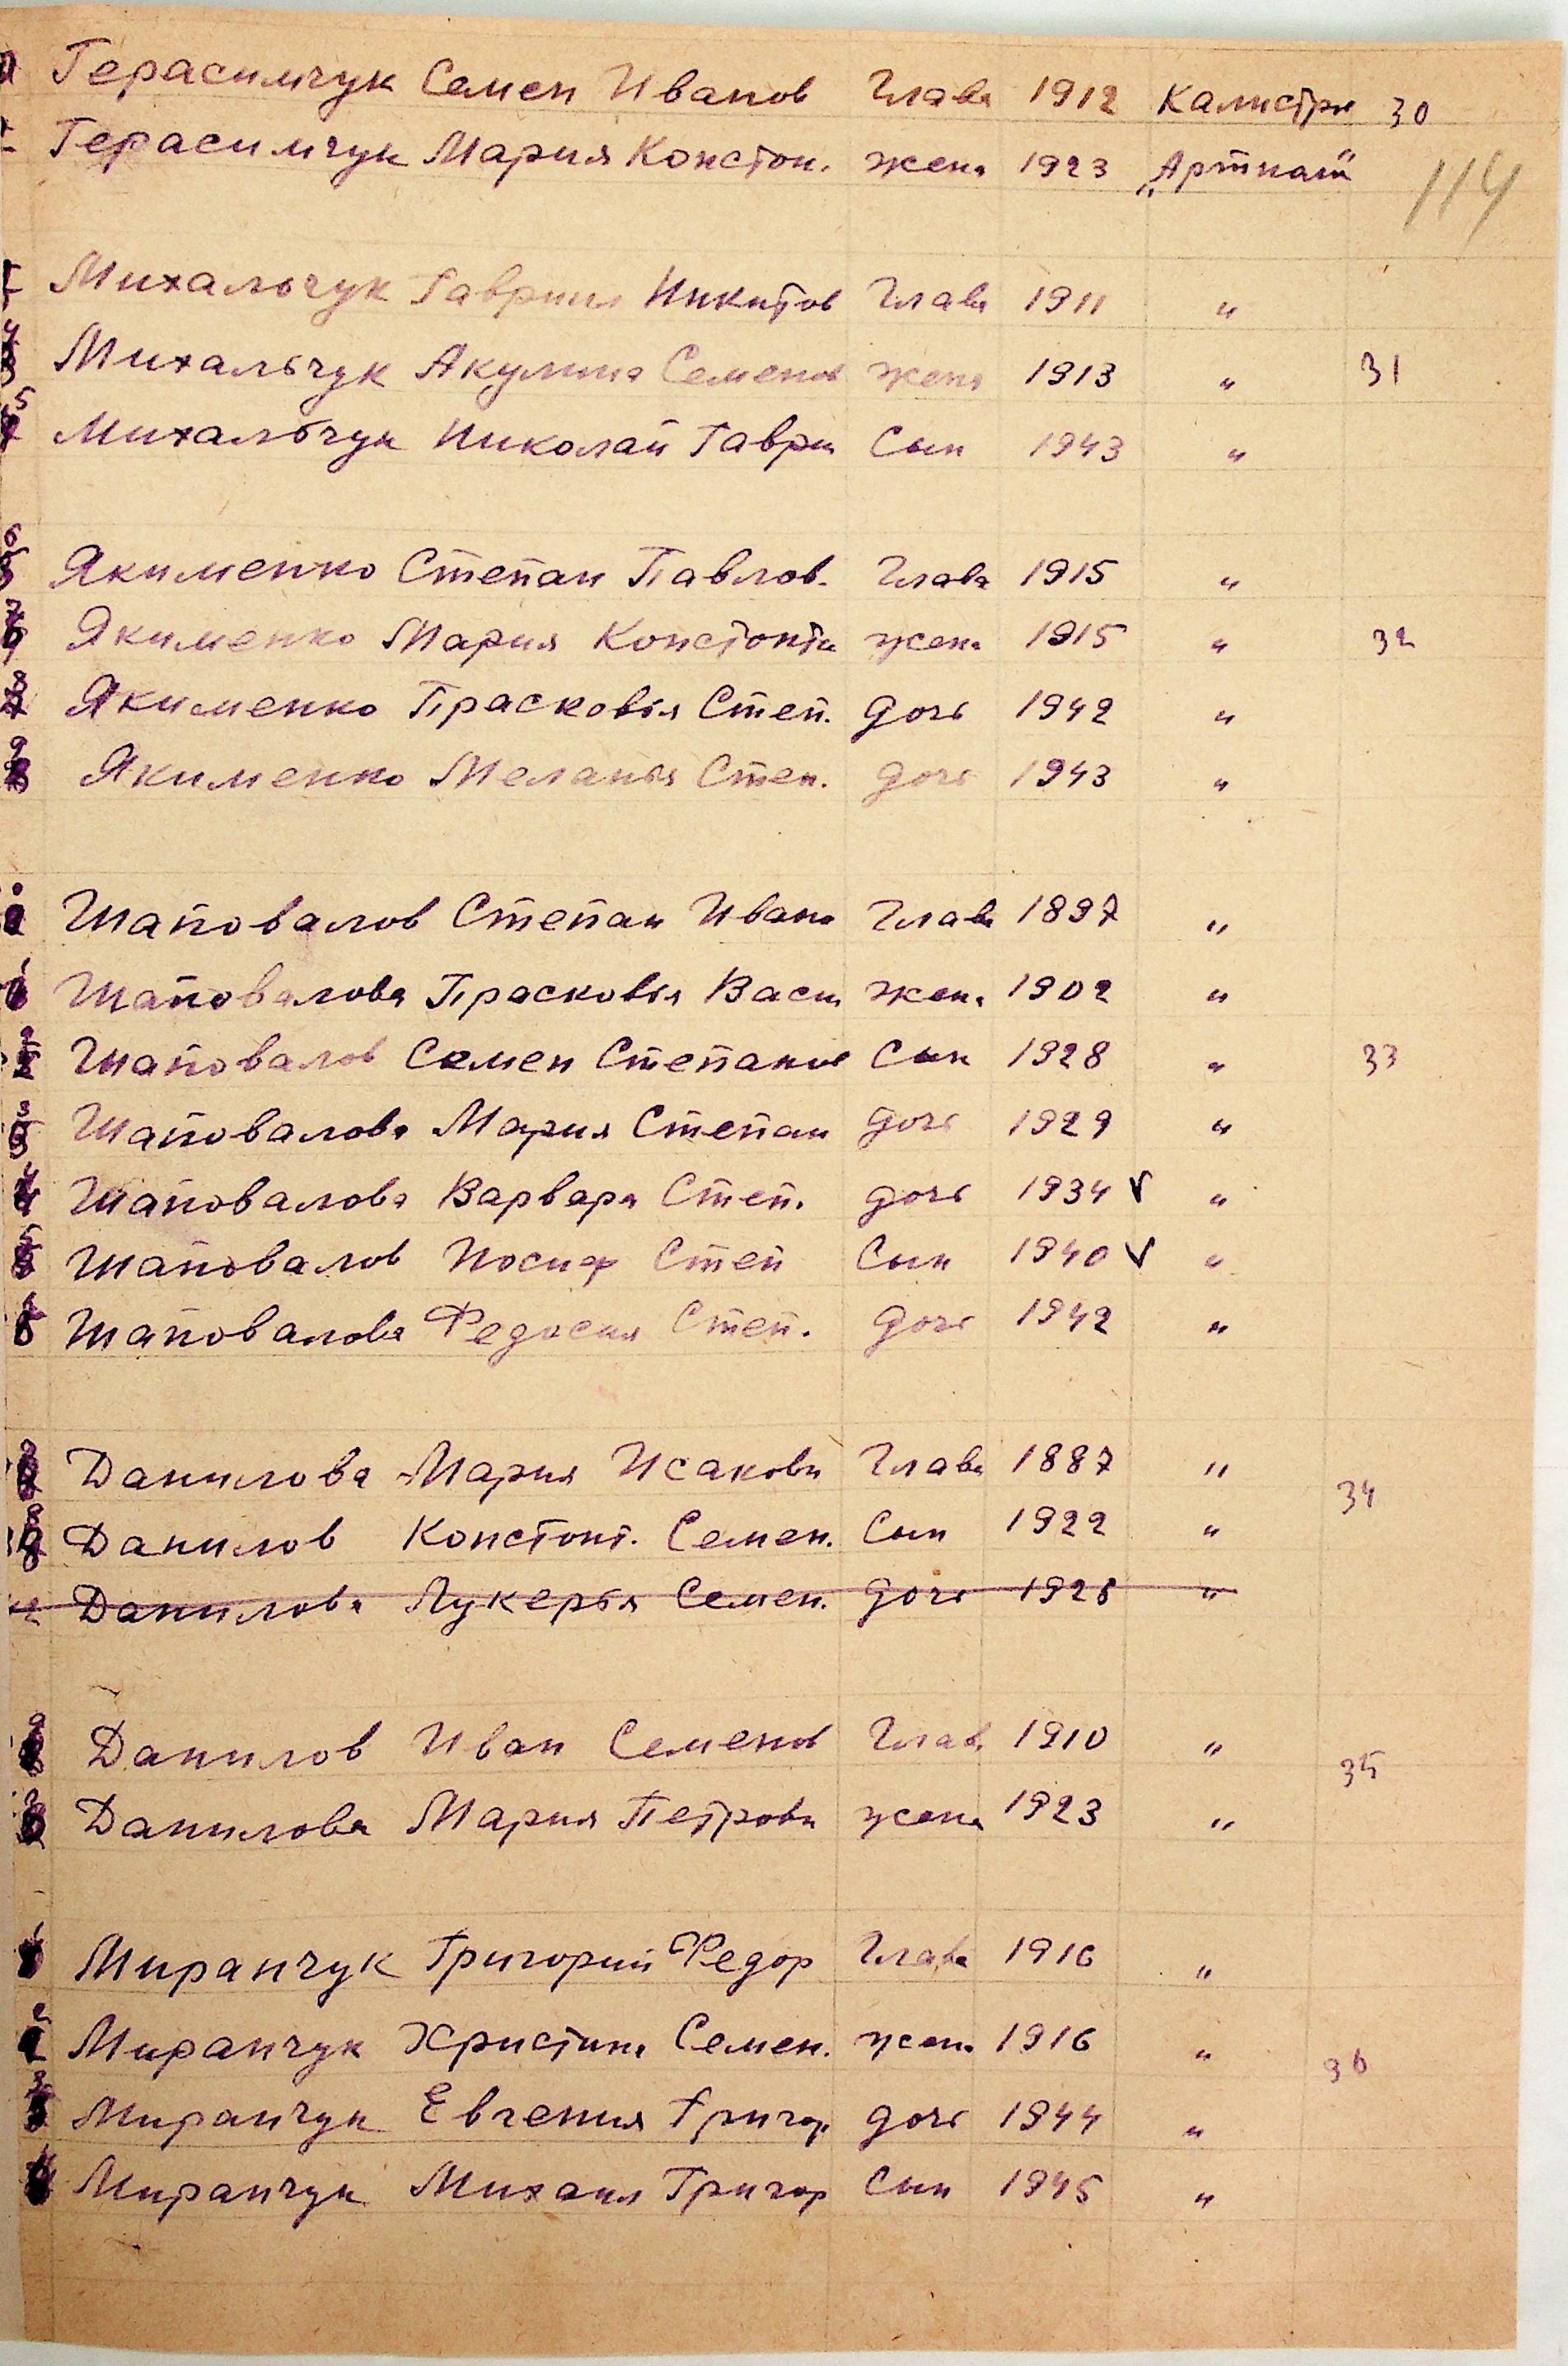 Герасимчук Семен Иванов Глава 1912 Калистра 30
Герасимчук Мария Констон. жена 1923
114
Михальчук Гавриил Никитов Глава 1911 "
4 Михальчук Акулина Семенов жена 1913 " 31
5 Михальчук Николай Гаври Сын 1943 "
6 Якименко Степан Павлов. Глава 1915 "
7 Якименко Мария Констонти жена 1915 " 32
8 Якименко Прасковія Степ. дочь 1942 "
9 Якименко Меланія Степ. дочь 1943 "
Шаповалов Степан Ивано Глава 1897 "
1 Шаповалова Прасковія Васи жена 1902 "
2 Шаповалов Семен Степанов Сын 1928 " 33
3 Шаповалова Мария Степан дочь 1929 "
4 Шаповалова Варвара Степ. дочь 1934 ✓ "
5 Шаповалов Иосиф Степ Сын 1940 ✓ "
6 Шаповалова Федосия Степ. дочь 1942 "
Данилова Мария Исакови Глава 1887 " 34
8 Данилов Констонт. Семен. Сын 1922 "
Данилова Лукерья Семен. дочь 1928 "
9 Данилов Иван Семенов Глав. 1910 " 35
Данилова Мария Петрови жена 1923 "
1 Миранчук Григорий Федор Глава 1916 "
2 Миранчук Христина Семен. жена 1916 " 36
3 Миранчук Евгения Григор дочь 1944 "
4 Миранчук Михаил Григор Сын 1945 "